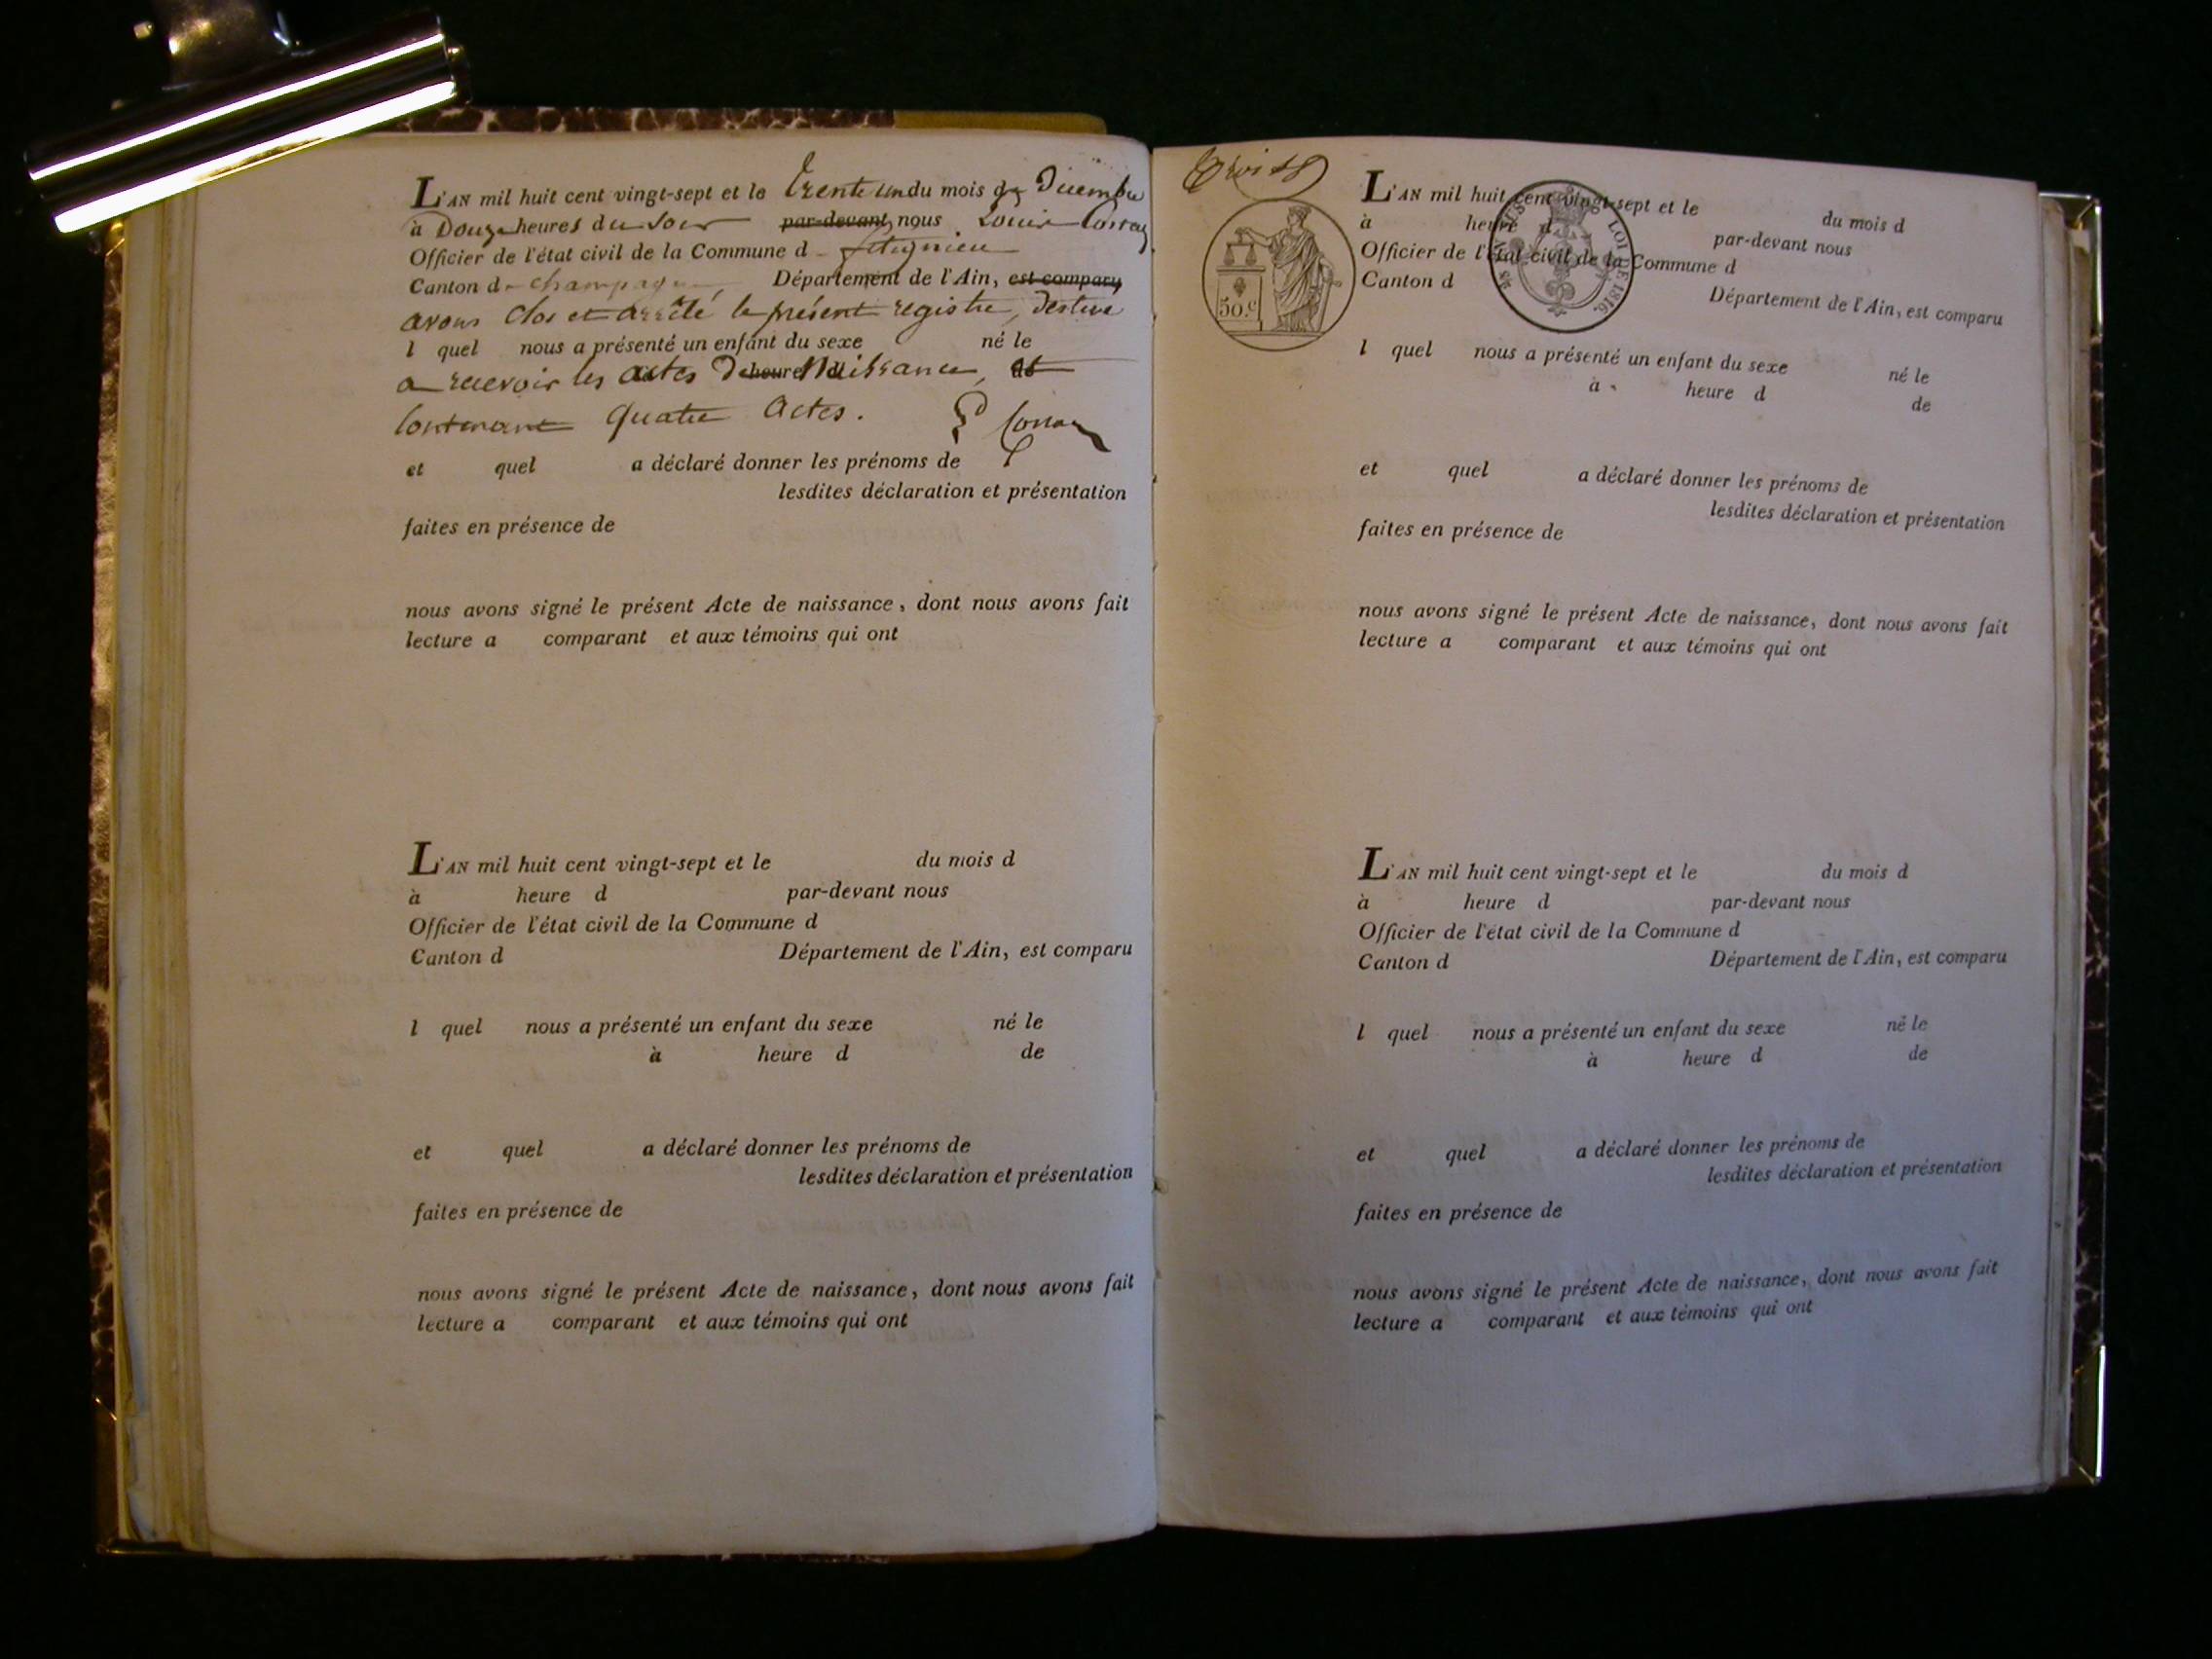 L'AN mil huit cent vingt-sept et le trente un du mois de Decembre
à Douze heures du Soir par-devant nous Louis
Officier de l'état civil de la Commune d
Canton de champagne Département de l'Ain, est comparu
avons clos et arrêté le présent registre, destiné
l quel nous a présenté un enfant du sexe né le
a recevoir les actes De heure Naissance, de
Contenant quatre actes.
et quel a déclaré donner les prénoms de
lesdites déclaration et présentation
faites en présence de
nous avons signé le présent Acte de naissance, dont nous avons fait
lecture a comparant et aux témoins qui ont
L'AN mil huit cent vingt-sept et le du mois d
à heure d par-devant nous
Officier de l'état civil de la Commune d
Canton d Département de l'Ain, est comparu
l quel nous a présenté un enfant du sexe né le
à heure d de
et quel a déclaré donner les prénoms de
lesdites déclaration et présentation
faites en présence de
nous avons signé le présent Acte de naissance, dont nous avons fait
lecture a comparant et aux témoins qui ont
50.c
LOI DE 1816.
L'AN mil huit cent vingt-sept et le du mois d
à heure d par-devant nous
Officier de l'état civil de la Commune d
Canton d Département de l'Ain, est comparu
l quel nous a présenté un enfant du sexe né le
à heure d de
et quel a déclaré donner les prénoms de
lesdites déclaration et présentation
faites en présence de
nous avons signé le présent Acte de naissance, dont nous avons fait
lecture a comparant et aux témoins qui ont
L'AN mil huit cent vingt-sept et le du mois d
à heure d par-devant nous
Officier de l'état civil de la Commune d
Canton d Département de l'Ain, est comparu
l quel nous a présenté un enfant du sexe né le
à heure d de
et quel a déclaré donner les prénoms de
lesdites déclaration et présentation
faites en présence de
nous avons signé le présent Acte de naissance, dont nous avons fait
lecture a comparant et aux témoins qui ont